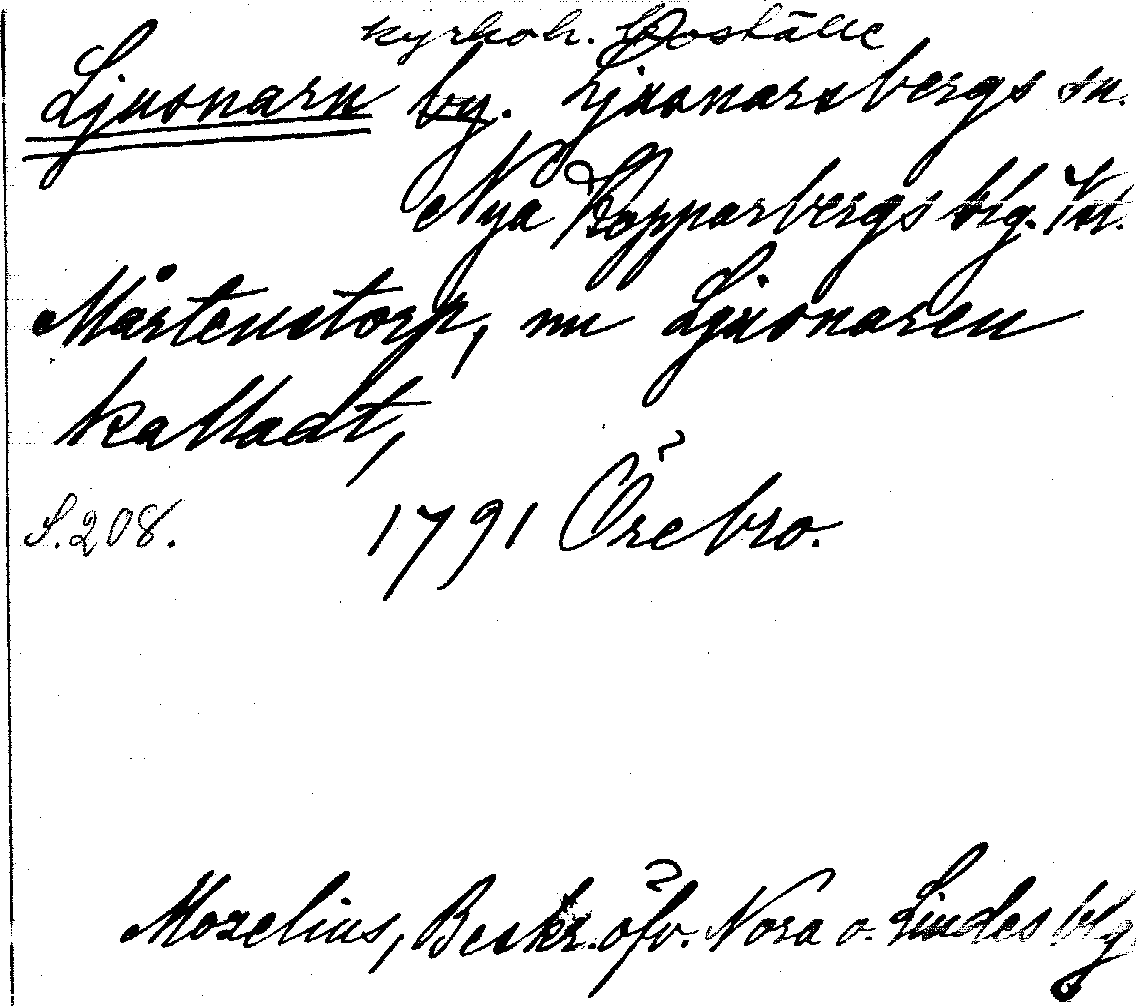 kyrkoh. boställe
Ljusnarn by. Ljusnarsbergs sn.
Nya Kopparbergs blg. Vstl.
Mårtenstorp, nu Ljusnaren
kalladt,
S. 208. 1791 Örebro.
Mozelius, Beskr. öfv. Nora o. Lindes blg.